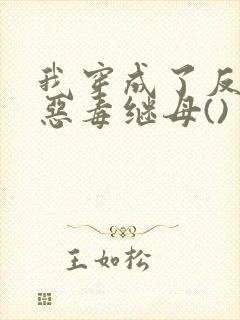 我穿成了反
恶毒继母()
王如松